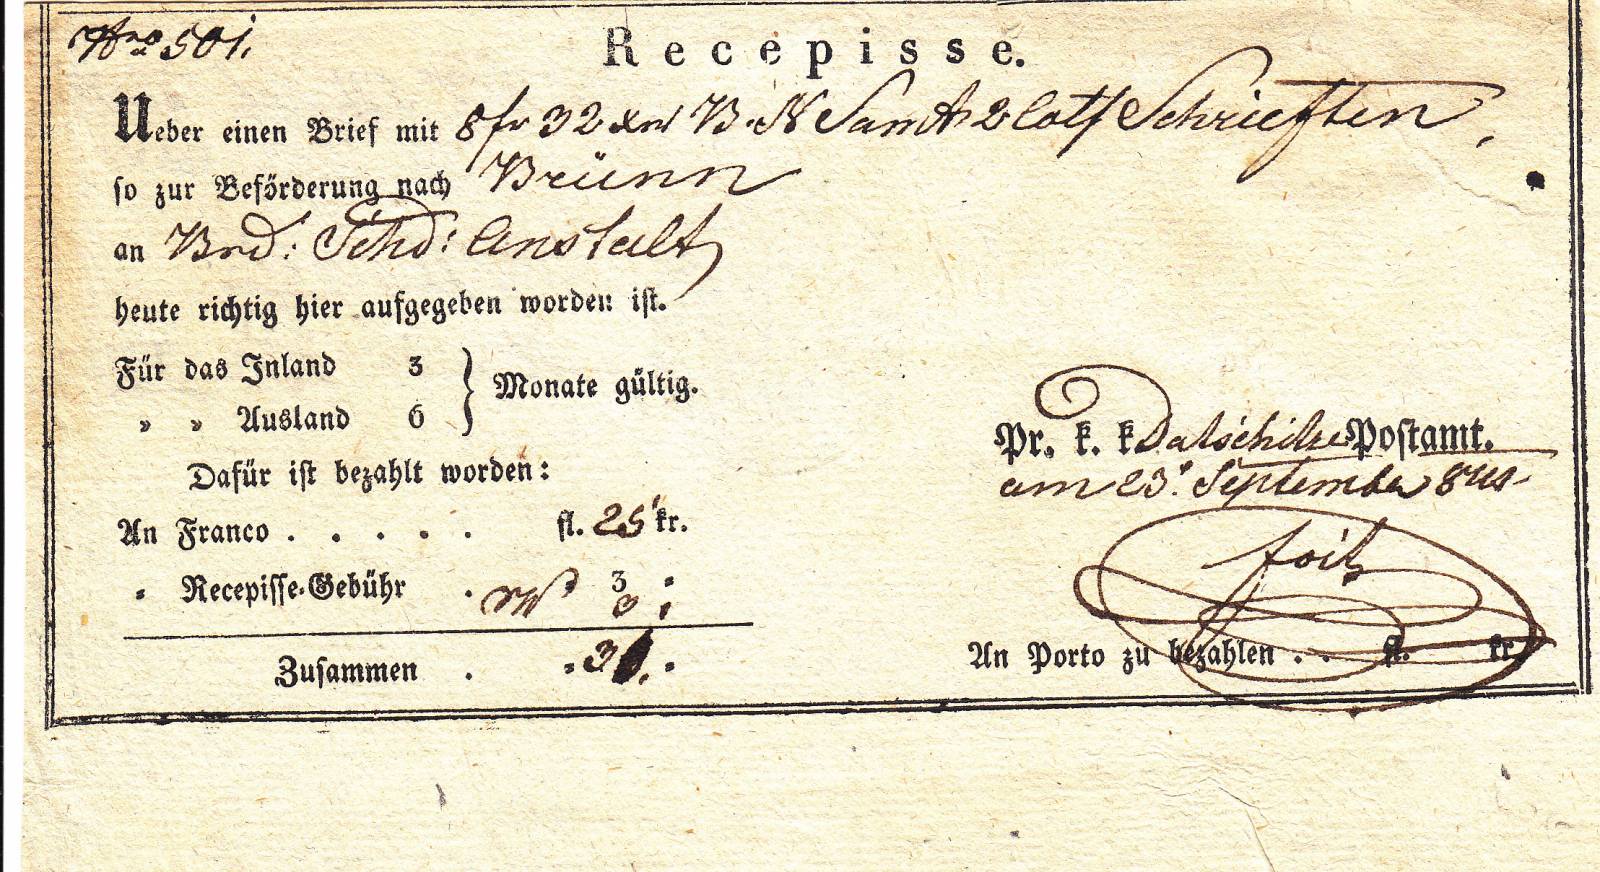 Nro 501.
Recepisse.
Ueber einen Brief mit 8 fr 32 xr B. N. Samt 2 loth Schrieften
so zur Beförderung nach Brünn
an Brd: Schd: Anstalt
heute richtig hier aufgegeben worden ist.
Für das Inland 3
„ „ Ausland 6
Monate gültig.
Dafür ist bezahlt worden:
An Franco . . . . . fl. 25 kr.
„ Recepisse-Gebühr . 3 „
3.
Zusammen . „ „
Pr. k. k. Datschitzer Postamt.
am 23. September
foit
An Porto zu bezahlen . . fl. kr.